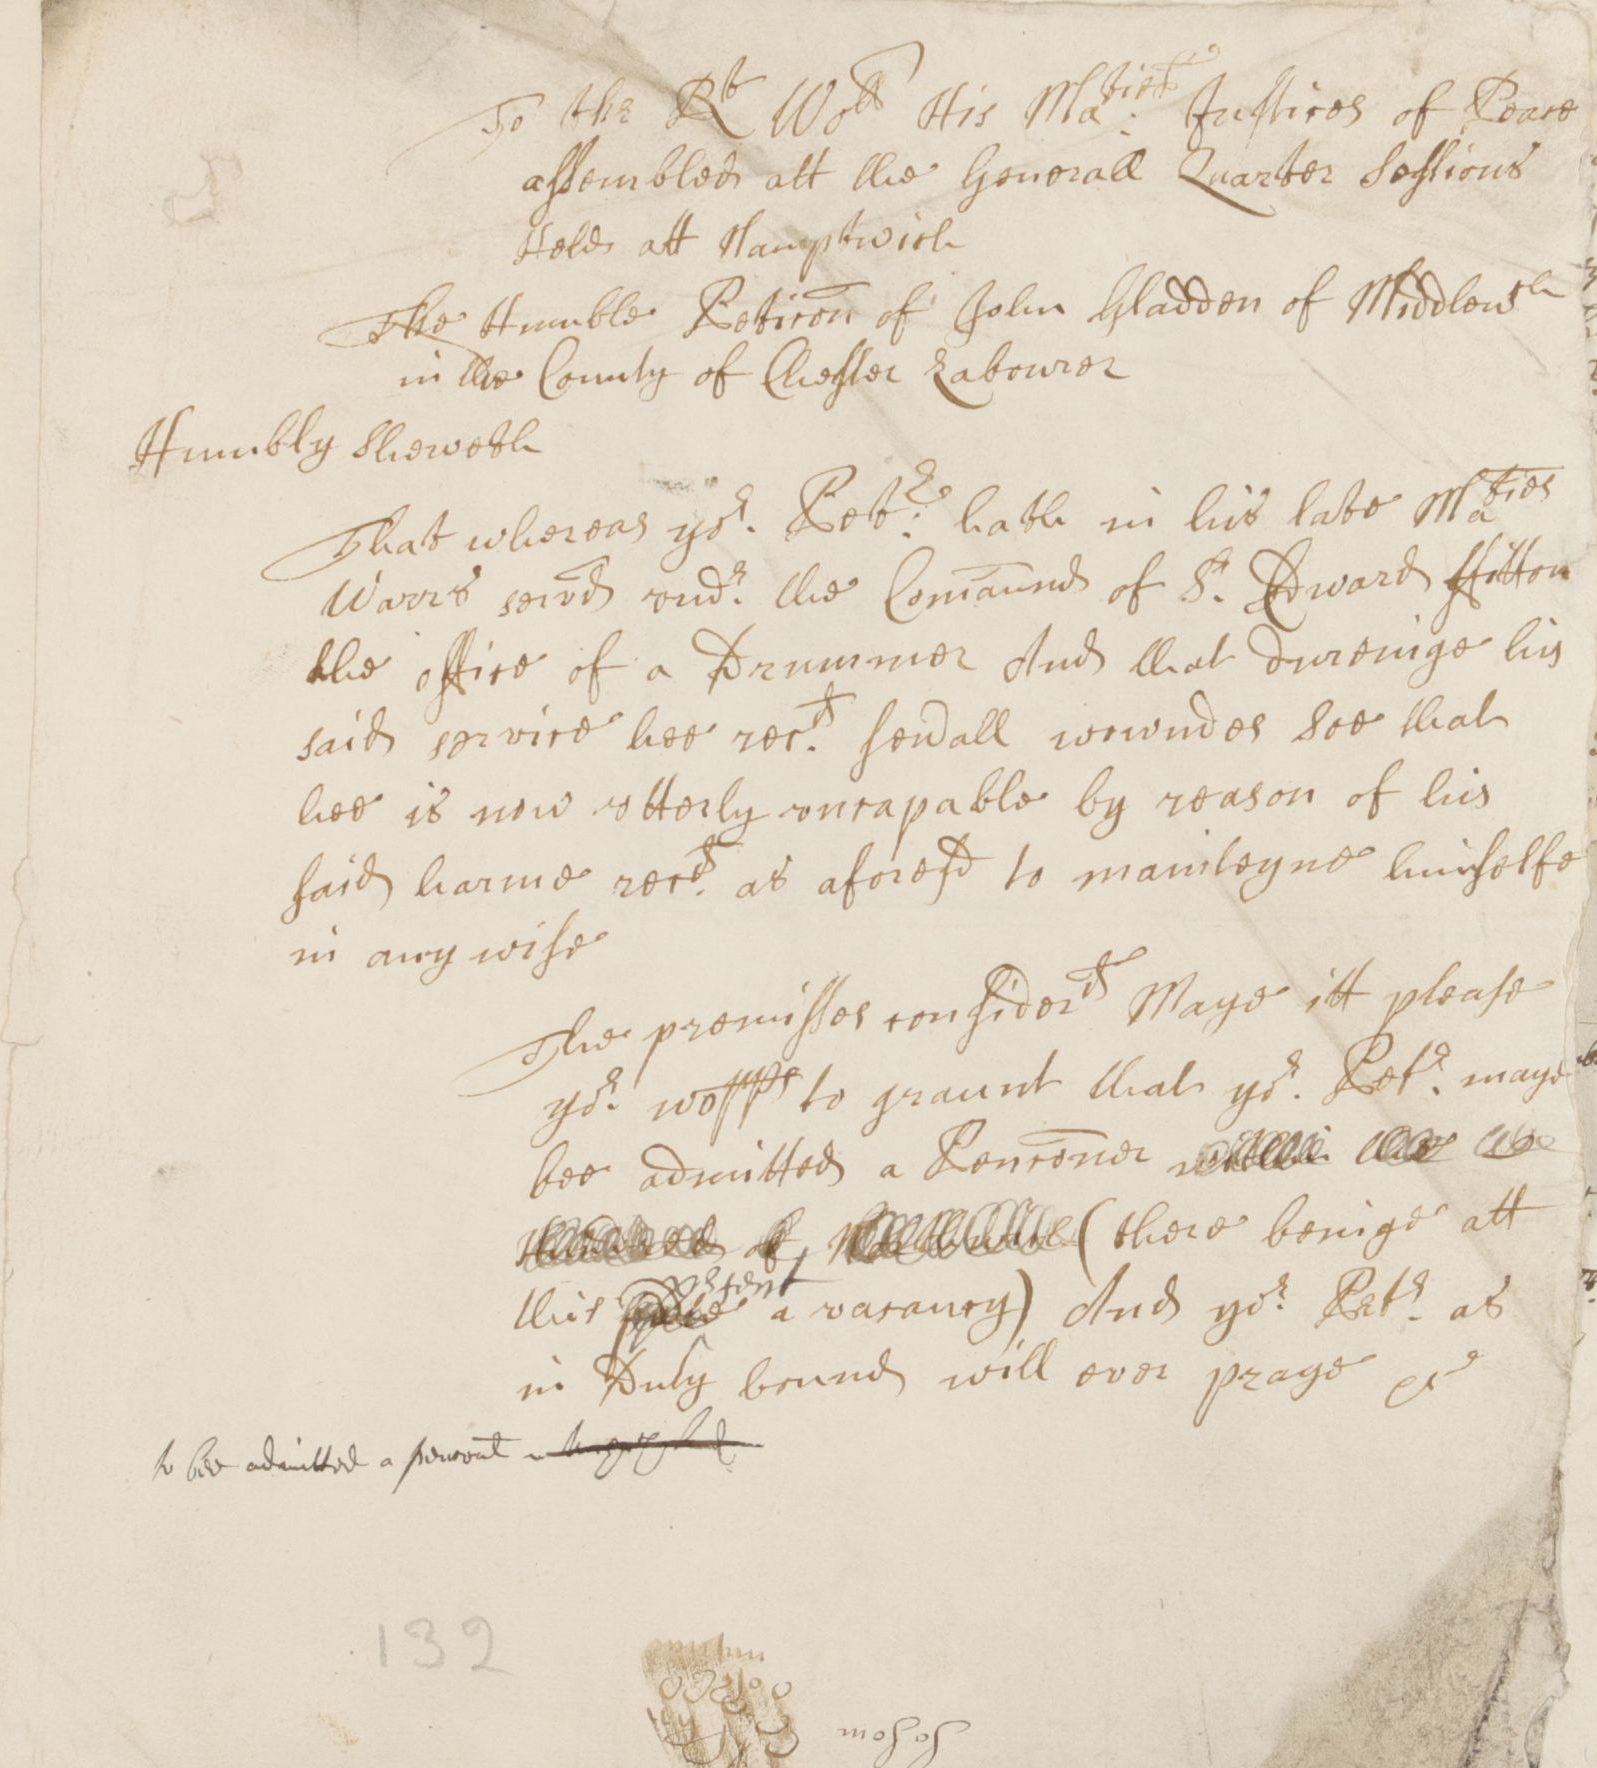 To the Rt Wor His Maties: Justices of Peace
assembled att the Generall Quarter Sessions
Held att Namptwich
The Humble Peticon of John Gladden of Middlewch
in the County of Chester Labourer
Humbly Sheweth
That whereas yor. Petr: hath in his late Maties
Warrs servd vndr. the Comaund of Sr. Edward ffitton
the office of a Drummer And that dureinge his
said service hee recd. sevall wowndes Soe that
hee is now vtterly vncapable by reason of his
said harme reced. as aforesd to mainteyne himselfe
in any wise
The premisses considerd Maye itt please
yor. wopps to graunt that yor. Petr. maye
bee admitted a Penconer within the
Hundred of Northwich (there beinge att
this psent a vacancy) And yor. Petr. as
in Duty bound will ever praye &c
to bee admitted a
132